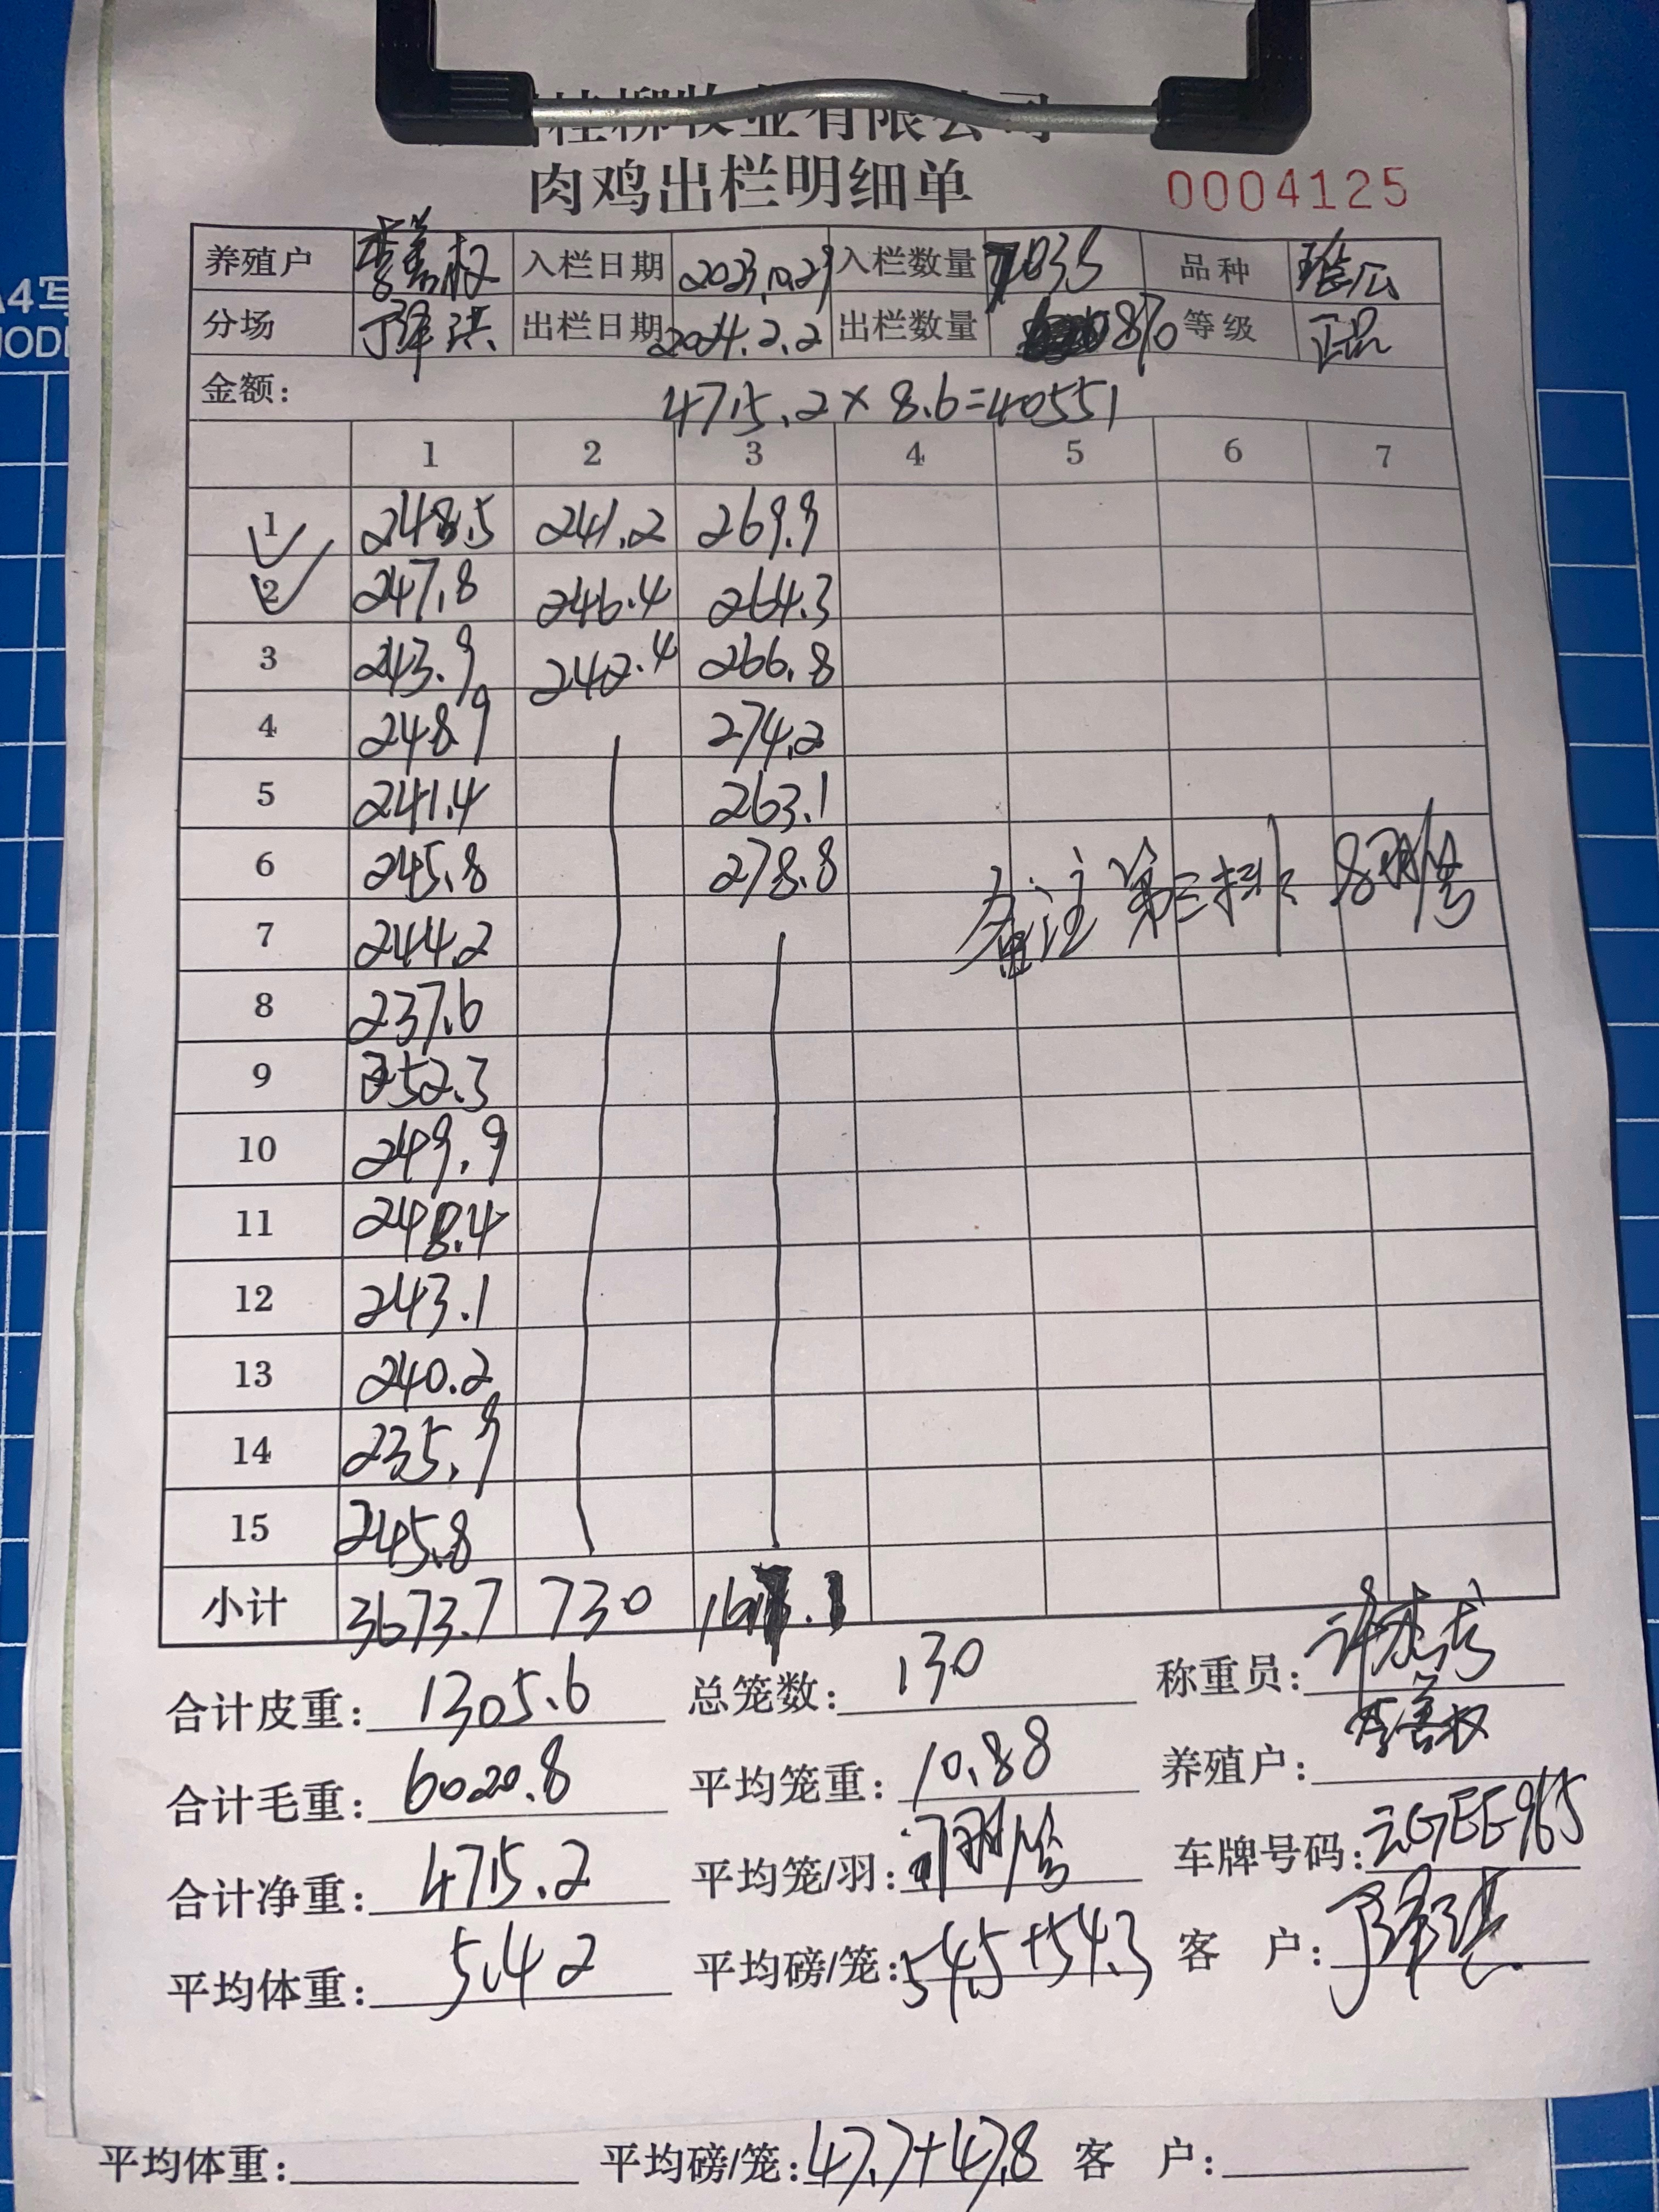 桂柳牧业有限公司
肉鸡出栏明细单 0004125
养殖户 李善权 入栏日期 2023.10.29 入栏数量 7035 品种 瑶公
分场 出栏日期 2024.2.2 出栏数量 870 等级 正品
金额: 4715.2×8.6=40551
1 2 3 4 5 6 7
1 248.5 241.2 269.9
2 247.8 246.4 264.3
3 243.9 242.4 266.8
4 248.9 274.2
5 241.4 263.1
6 245.8 278.8 备注第三排8羽/笼
7 244.2
8 237.6
9 252.3
10 249.9
11 248.4
12 243.1
13 240.2
14 235.9
15 245.8
小计 3673.7 730
合计皮重: 1305.6 总笼数: 130 称重员:
合计毛重: 6020.8 平均笼重: 10.88 养殖户: 李善权
合计净重: 4715.2 平均笼/羽: 7羽/笼 车牌号码: 云GEE965
平均体重: 5.42 平均磅/笼: 54.5+54.3 客 户:
平均体重: 平均磅/笼: 47.7+47.8 客 户: